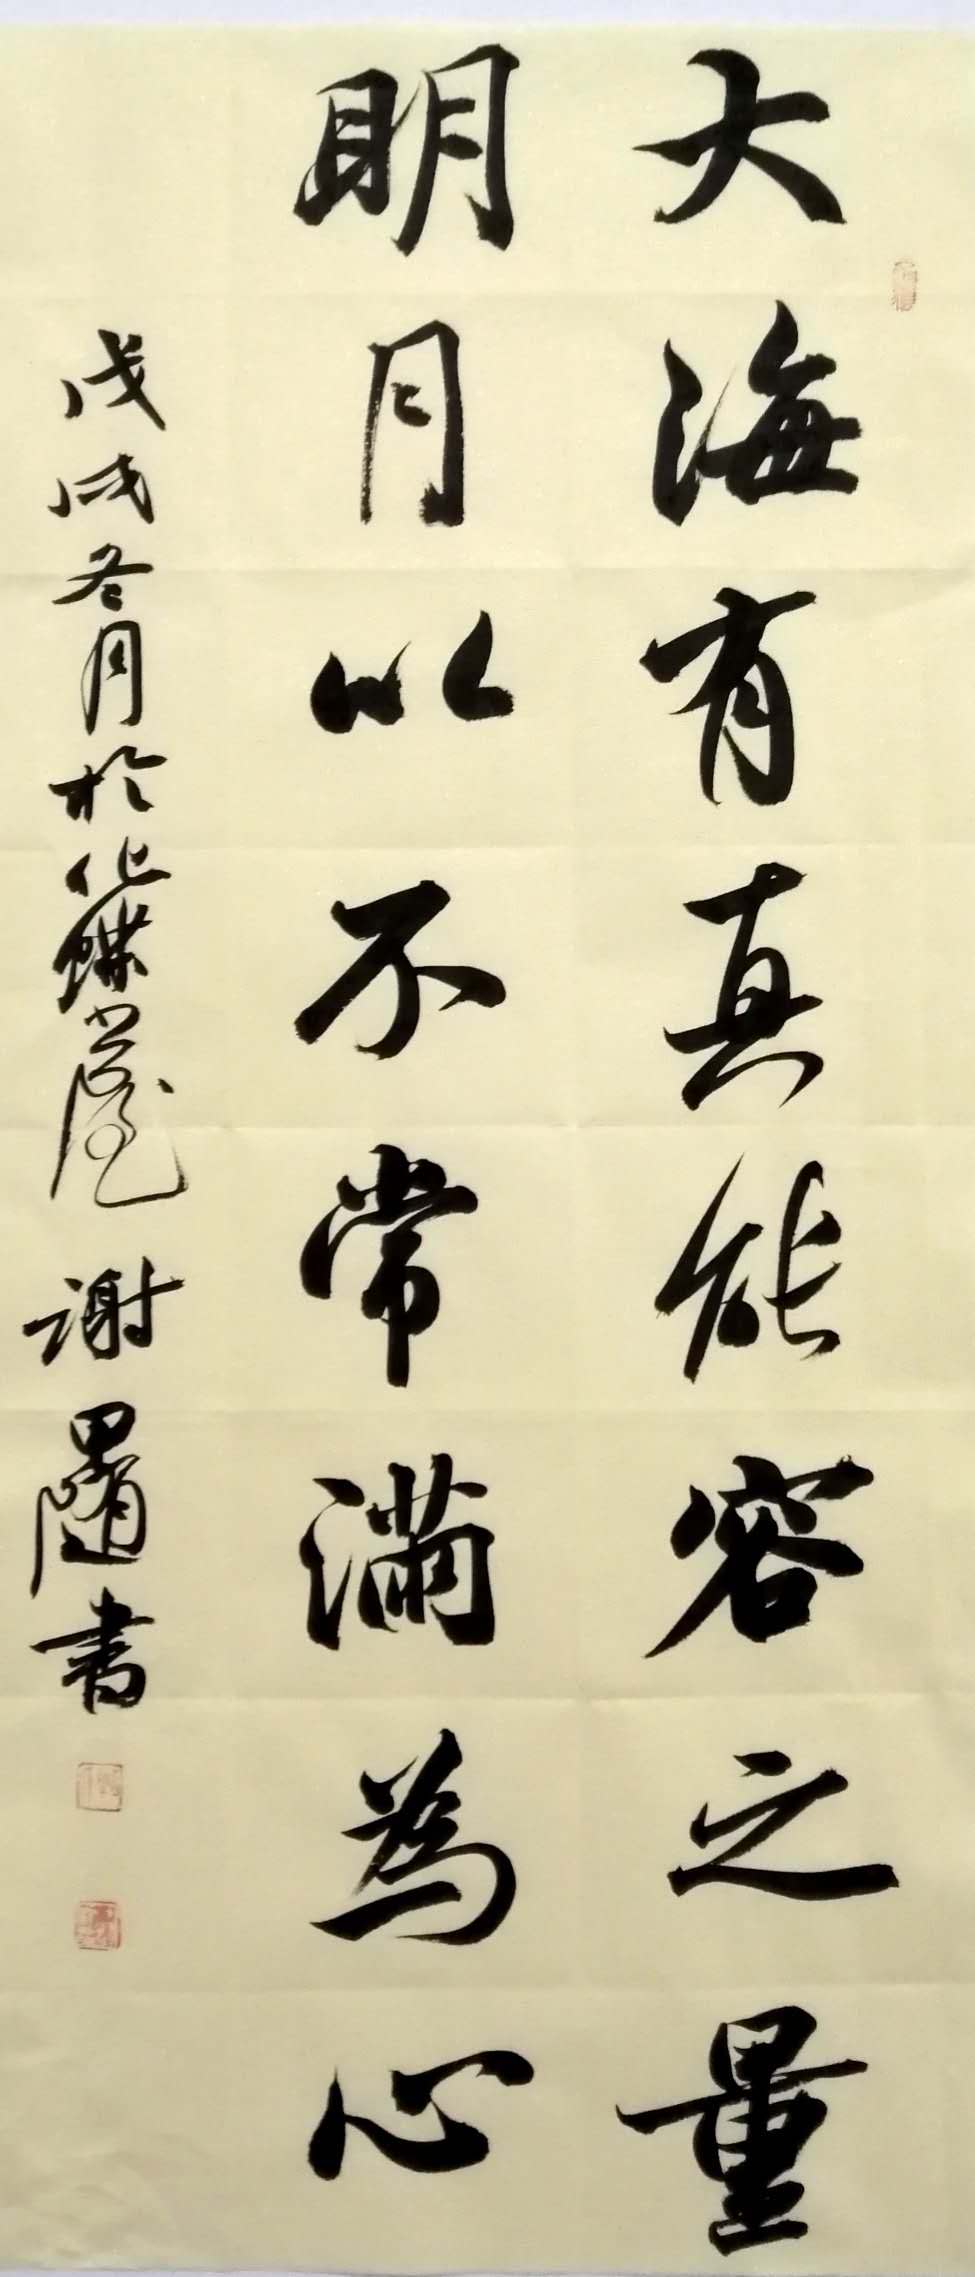 大海有真能容之量
明月以不常滿為心
戊戌冬月於化蝶堂 謝墨隨書